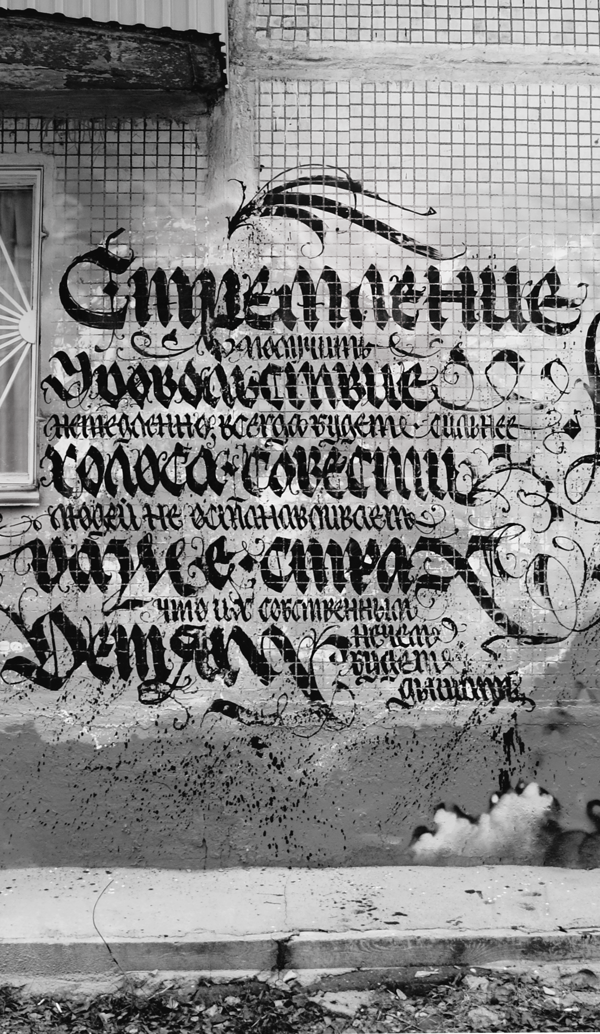 Стремление
получить
Удовольствие
немедленно, всегда будет сильнее
голоса совести
людей не останавливает
даже страх
что их собственным
Детям нечем
будет
дышать